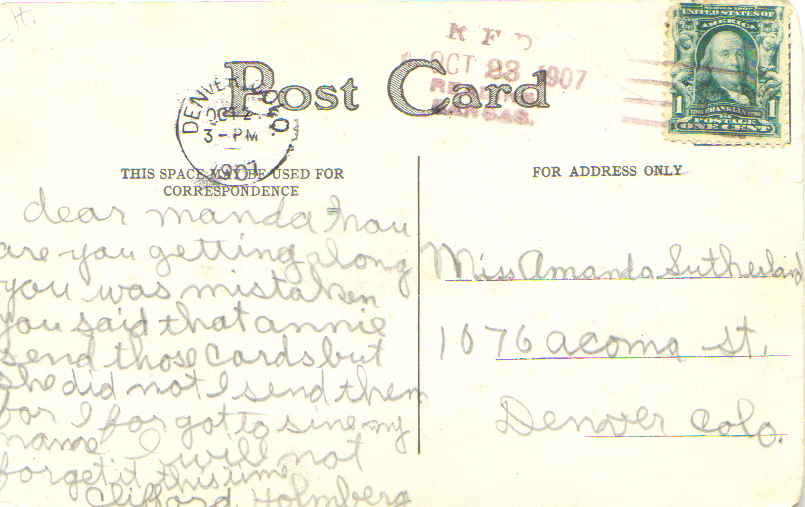 H.
R F D
OCT 23 1907
KANSAS.
UNITED STATES OF
AMERICA
1 1
POSTAGE
ONE CENT
Post Card
DENVER, COLO.
OCT 2
3-PM
1907
THIS SPACE MAY BE USED FOR
CORRESPONDENCE
FOR ADDRESS ONLY
dear manda how
are you getting along
you was mistaken
you said that annie
send those cards but
she did not I send them
for I for got to sine my
name I will not
forget it this time
Clifford Holmberg
Miss Amanda Sutherland
1076 acoma st.
Denver Colo.